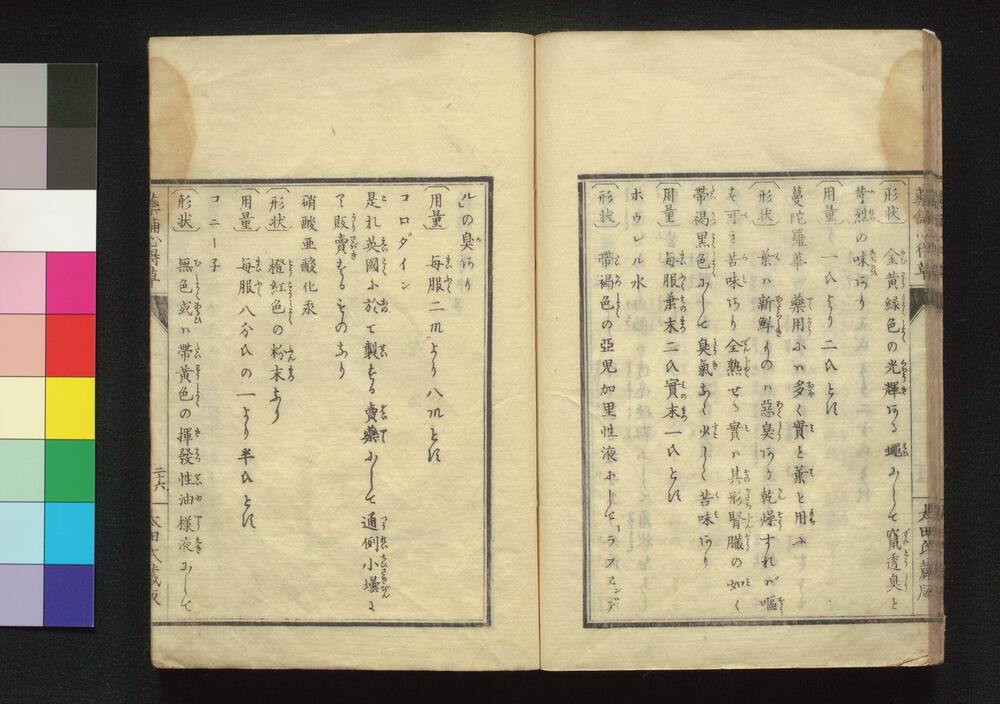 〔形状〕 金黄緑色の光輝ある蠅にして竄透臭と
苛烈の味あり
〔用量〕 一氏より二氏とす
曼陀羅華 薬用にハ多く實と葉と用ふ
〔形状〕 葉ハ新鮮ものハ惡臭あり乾燥すれバ嘔
を可き苦味あり全熟せる實ハ其形腎臓の如く
帶褐黒色にして臭氣なく少しく苦味あり
〔用量〕 毎服葉末二氏實末一氏とす
ホウレル水
〔形状〕 帶褐色の亞児加里性液にして「ラフエンデ
ル」の臭あり
〔用量〕 毎服二㎖より八㎖とす
コロダイン
是れ英國に於て製する賣藥にして通例小壜に
て販賣するものなり
硝酸亜酸化汞
〔形状〕 橙紅色の粉末なり
〔用量〕 毎服八分氏の一より半氏とす
コニー子
〔形状〕 無色或ハ帶黄色の揮發性油様液にして
藥舗心得草
二十六
太田氏蔵版